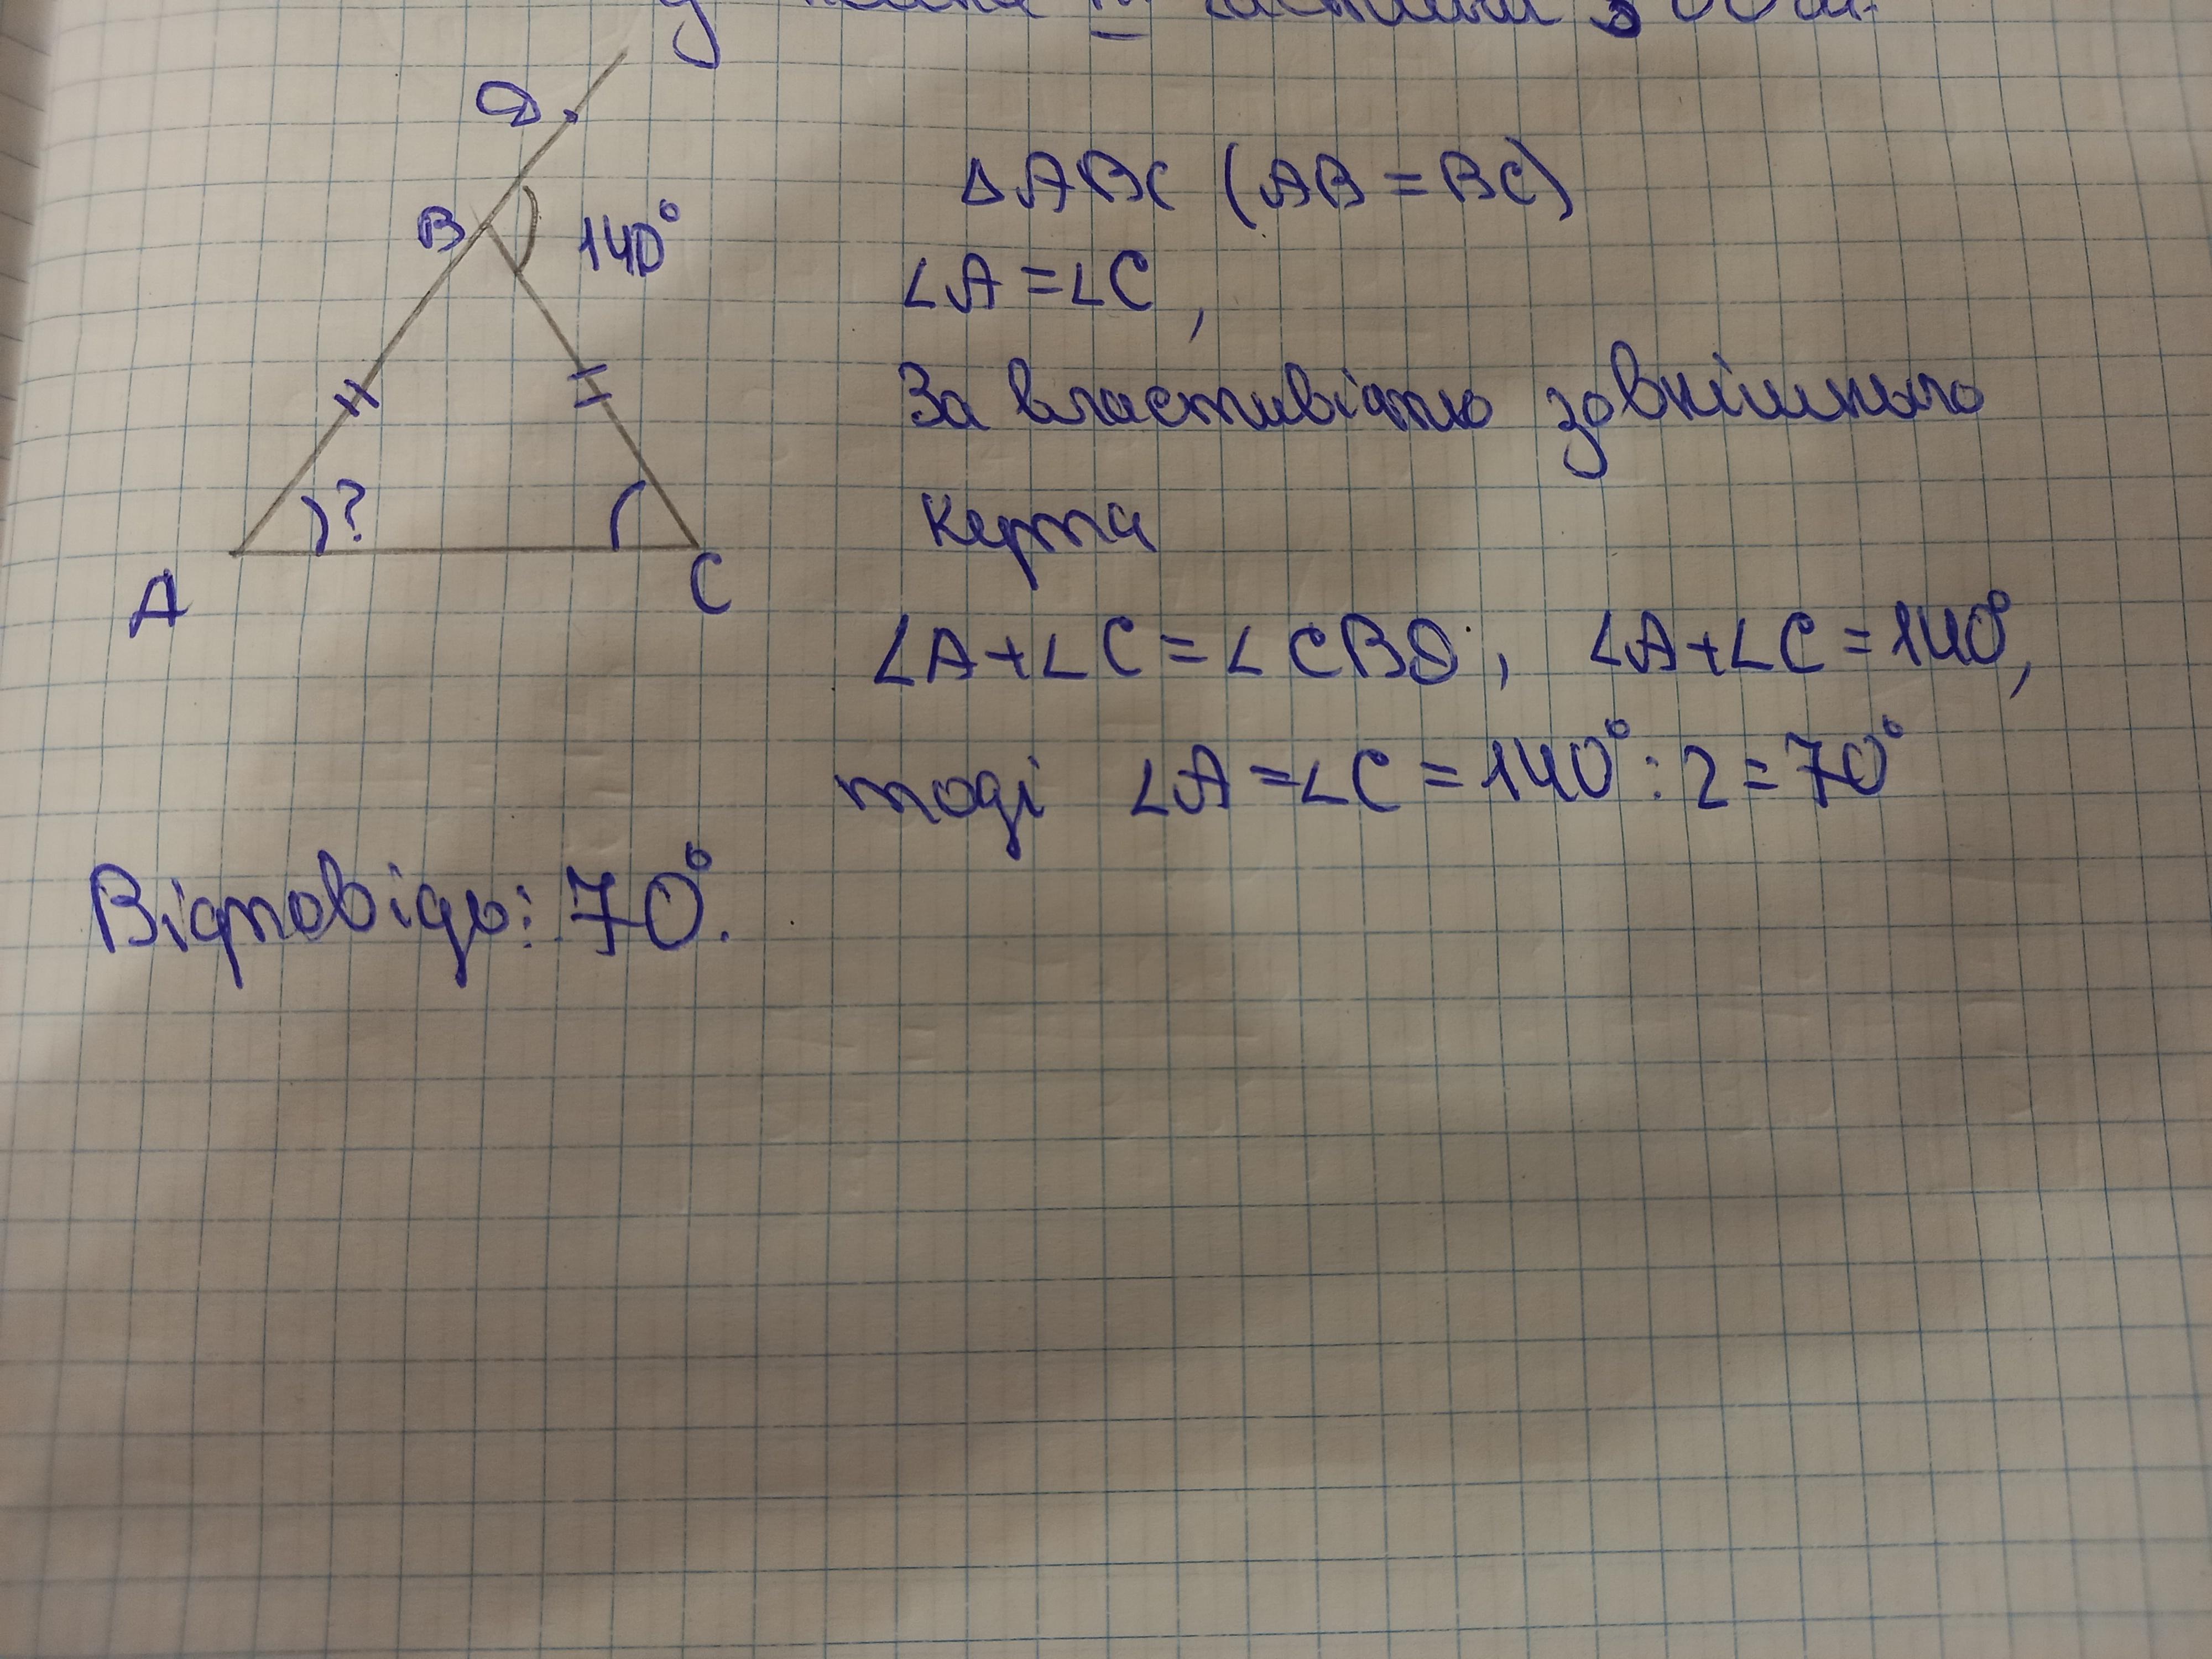 D
B
140°
?
A
C
ΔABC (AB = BC)
∠A = ∠C,
За властивістю зовнішнього
кута
∠A + ∠C = ∠CBD, ∠A + ∠C = 140°,
тоді ∠A = ∠C = 140° : 2 = 70°
Відповідь: 70°.